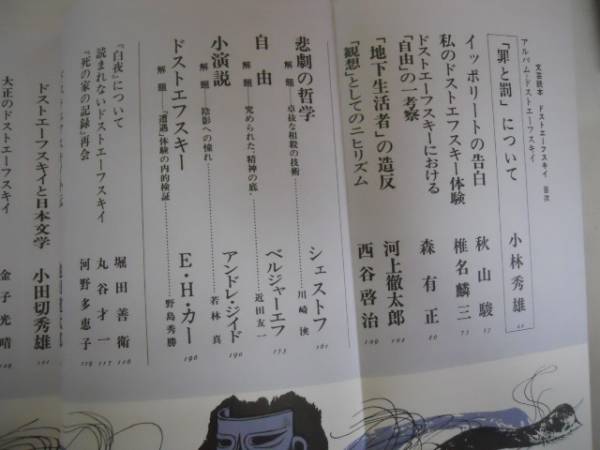 文芸読本 ドストエーフスキイ 目次
アルバム・ドストエーフスキイ
「罪と罰」について 小林秀雄
イッポリートの告白 秋山駿 57
私のドストエフスキー体験 椎名麟三 77
ドストエーフスキーにおける
「自由」の一考察 森有正
「地下生活者」の造反 河上徹太郎
「観想」としてのニヒリズム 西谷啓治
悲劇の哲学 シェストフ
解題 卓抜な相殺の技術 川崎浹 161
自由 ベルジャーエフ
解題 究められた“精神の底” 近田友一 173
小演説 アンドレ・ジイド
解題 陰影への憧れ 若林真 190
ドストエフスキー E・H・カー
解題 「遭遇」体験の内的検証 野島秀勝 196
『白夜』について 堀田善衛 116
読まれないドストエーフスキイ 丸谷才一 117
『死の家の記録』再会 河野多恵子 119
ドストエーフスキイと日本文学 小田切秀雄
大正のドストエーフスキイ 金子光晴